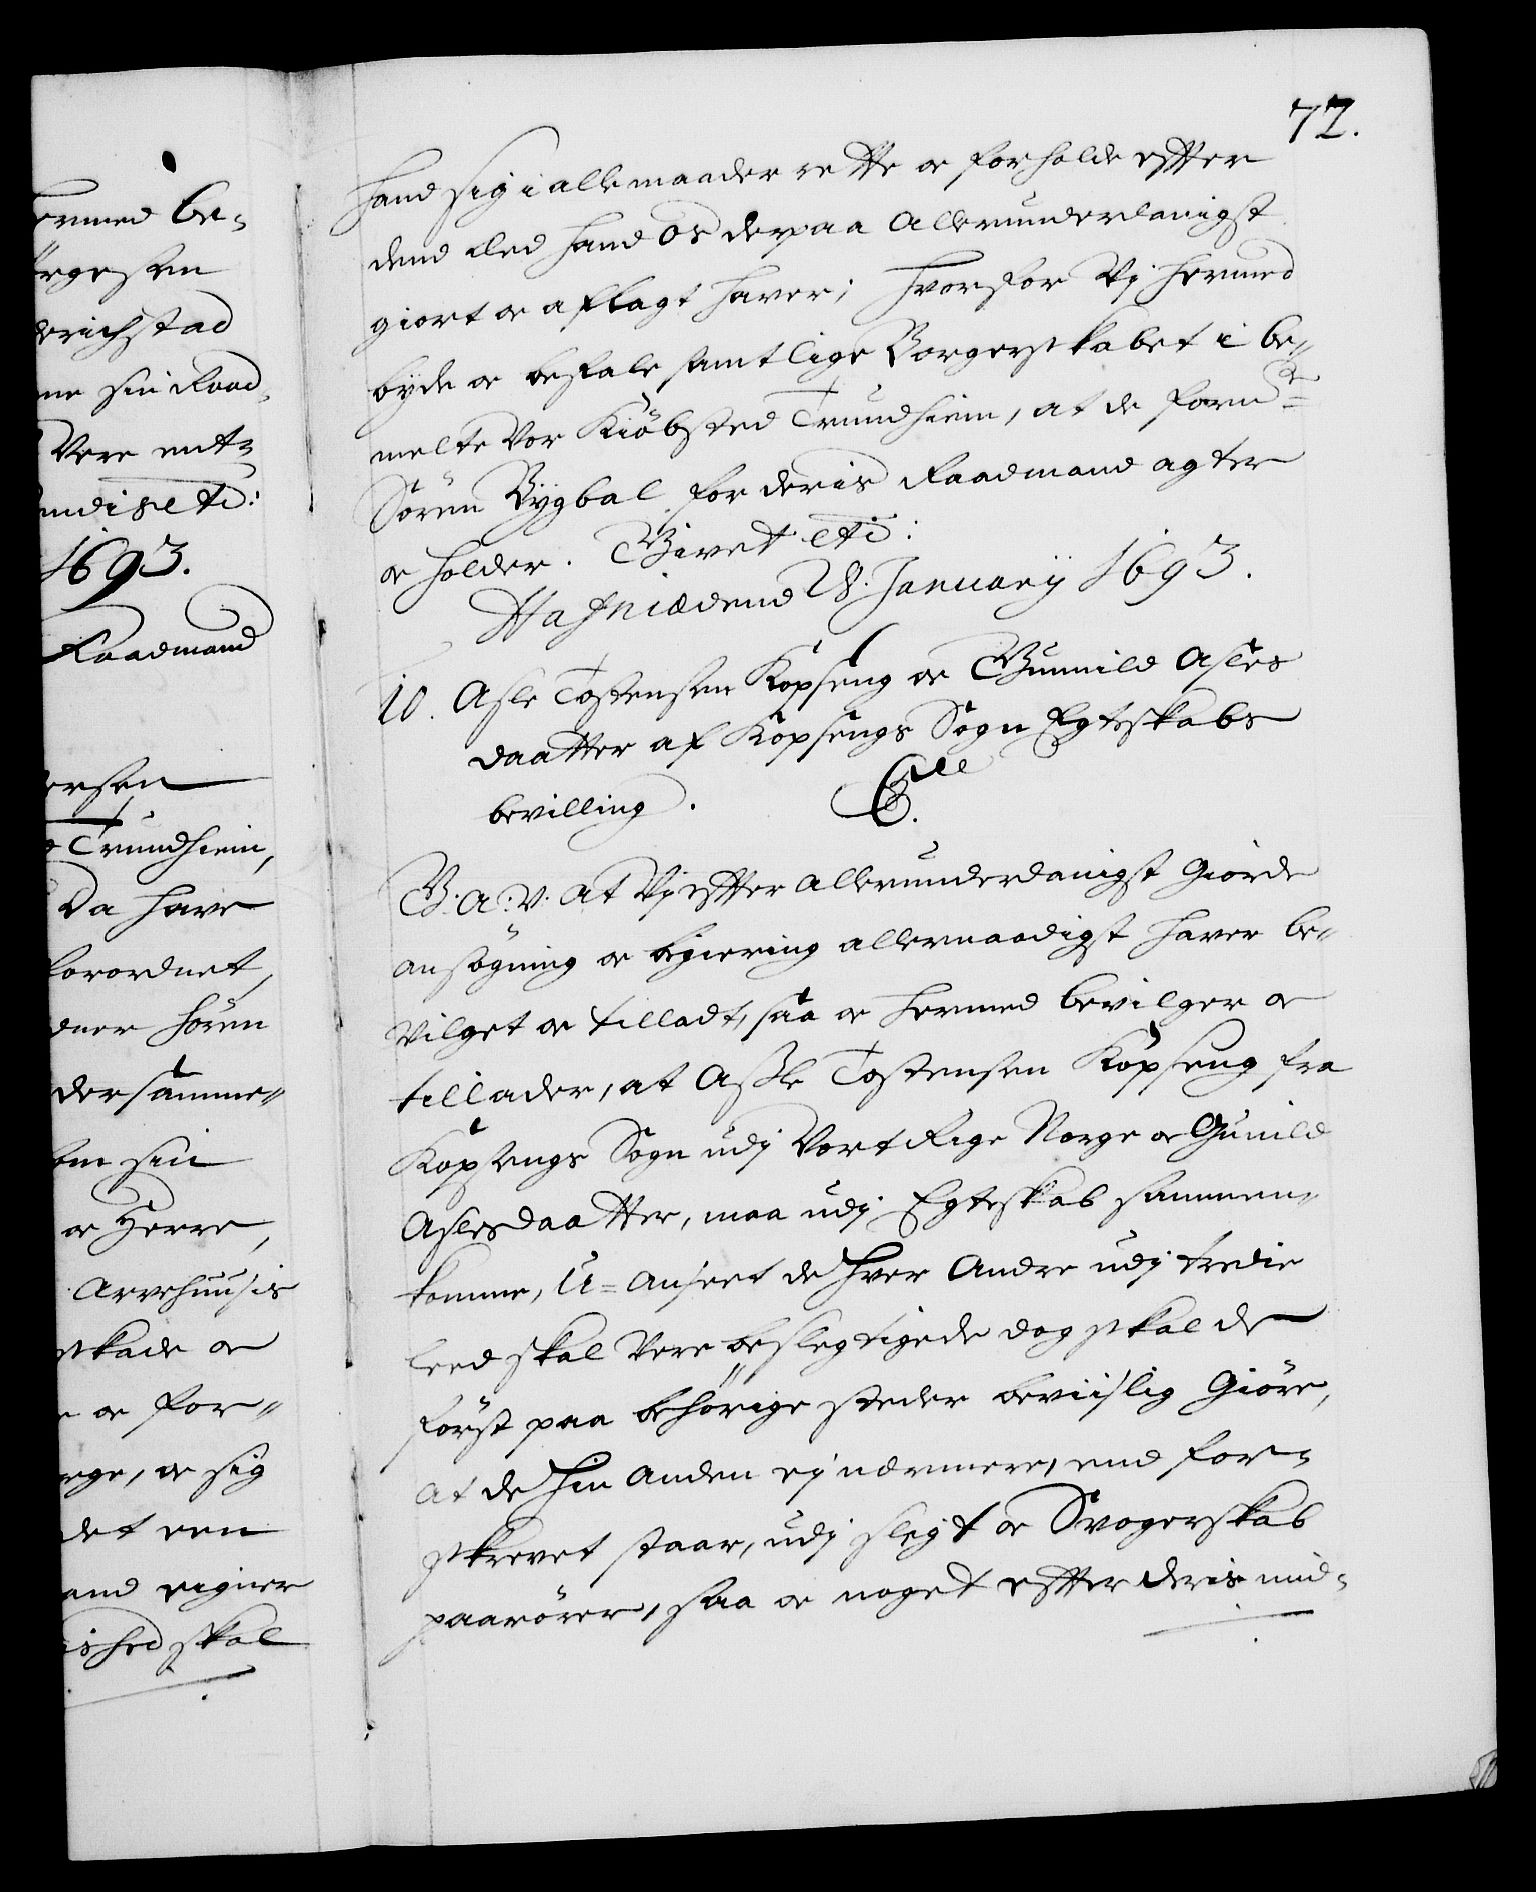 72.
hand sig i alle maader rette oc forholde effter
dend Eed hand Os derpaa Allerunderdanigst
giort oc aflagt haver; Hvorfor Vj hermed
byde oc befale samtlige Borgerskabet i be-
melte Vor Kiöbsted Trundhiem, at de forn:te
Sören Bygbal for deris Raadmand agter
oc holder. Givet etc:
Hafniæ dend 28. January 1693.
10. Asle Tostensen Köpseng oc Gunnild Asles
daatter af Köpsengs Sogn Egteskabs
bevilling.
G. A. V. At Vj effter allerunderdanigst Giorde
ansögning oc begiering allernaadigst haver be-
vilget oc tilladt, saa oc hermed bevilger oc
tillader, at Aßle Tostensen Köpseng fra
Köpsengs Sogn udj Vort Rige Norge oc Gunild
Aslesdaatter, maa udj Egteskab sammen-
komme, U-anseet de hver Andre udj tredie
leed skal Vere beslegtigede dog skal de
först paa behörige steder beviislig Giöre,
at de hin Anden ej nærmere, end for-
skrevet staar, udj slegt oc Svogerskab
paarörer, saa oc noget effter deris mid-
ermed be-
rgesen
derichstad
ne sin Raad-
Vere ent-
ndis etc:
1693.
Raadmand
ersen
Trundhiem,
Da have
forordnet,
dner Sören
der samme-
sin
oc Herre,
Arvehuusis
skade oc
oc for-
rge, oc sig
det een
and eigner
ished skal